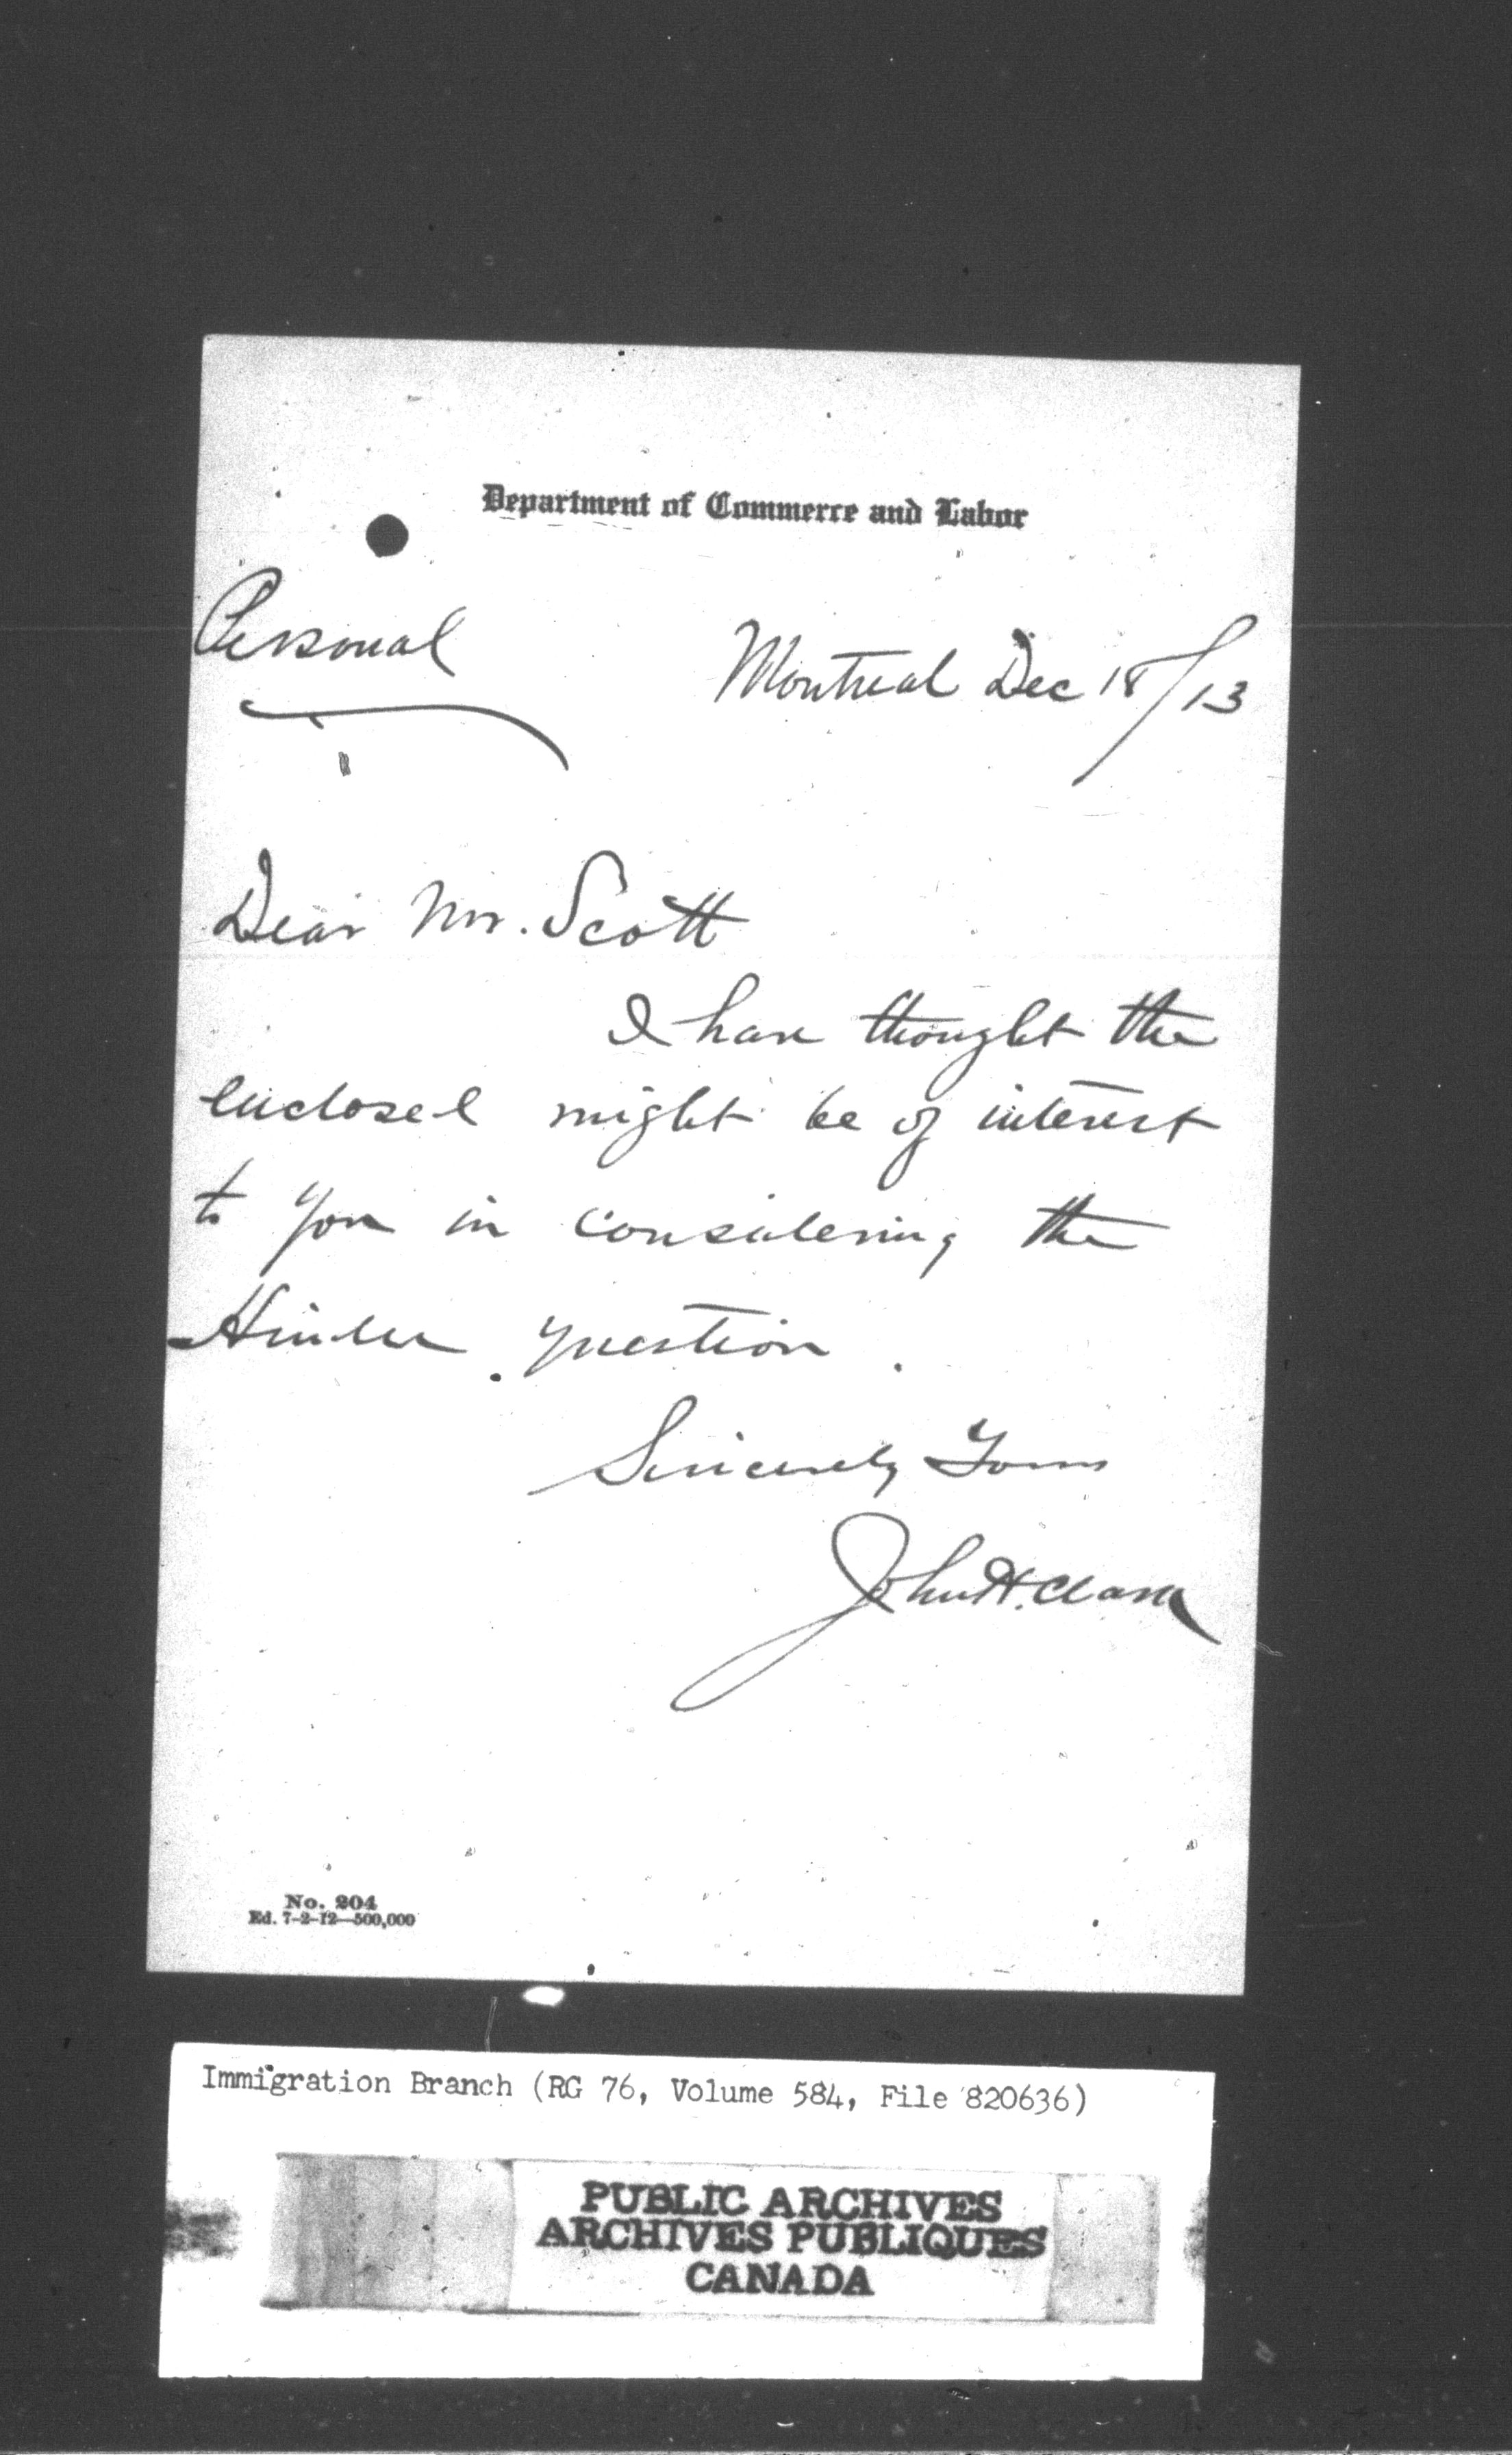 Department of Commerce and Labor
Personal
Montreal Dec 18/13
Dear Mr. Scott
I have thought the
enclosed might be of interest
to you in considering the
Hindu question.
Sincerely Yours
John H. Clark
No. 204
Ed. 7-2-12—500,000
Immigration Branch (RG 76, Volume 584, File 820636)
PUBLIC ARCHIVES
ARCHIVES PUBLIQUES
CANADA